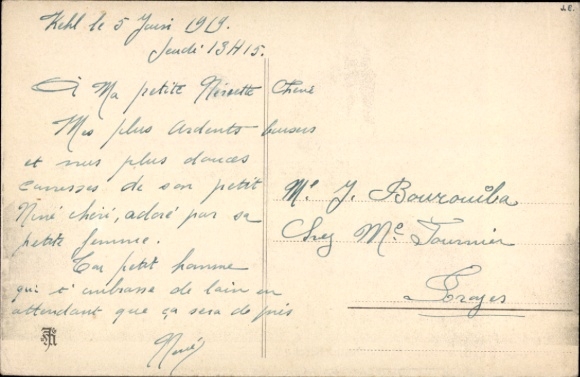 Kehl le 5 Juin 1919.
Jeudi 13H15.
À Ma petite Ninette Chérie
Mes plus ardents baisers
et mes plus douces
caresses de son petit
Néné chéri, adoré par sa
petite femme.
Ton petit homme
qui t'embrasse de loin en
attendant que ça sera de près
Néné
Me J. Bourouiba
Chez Me Tournier
Troyes